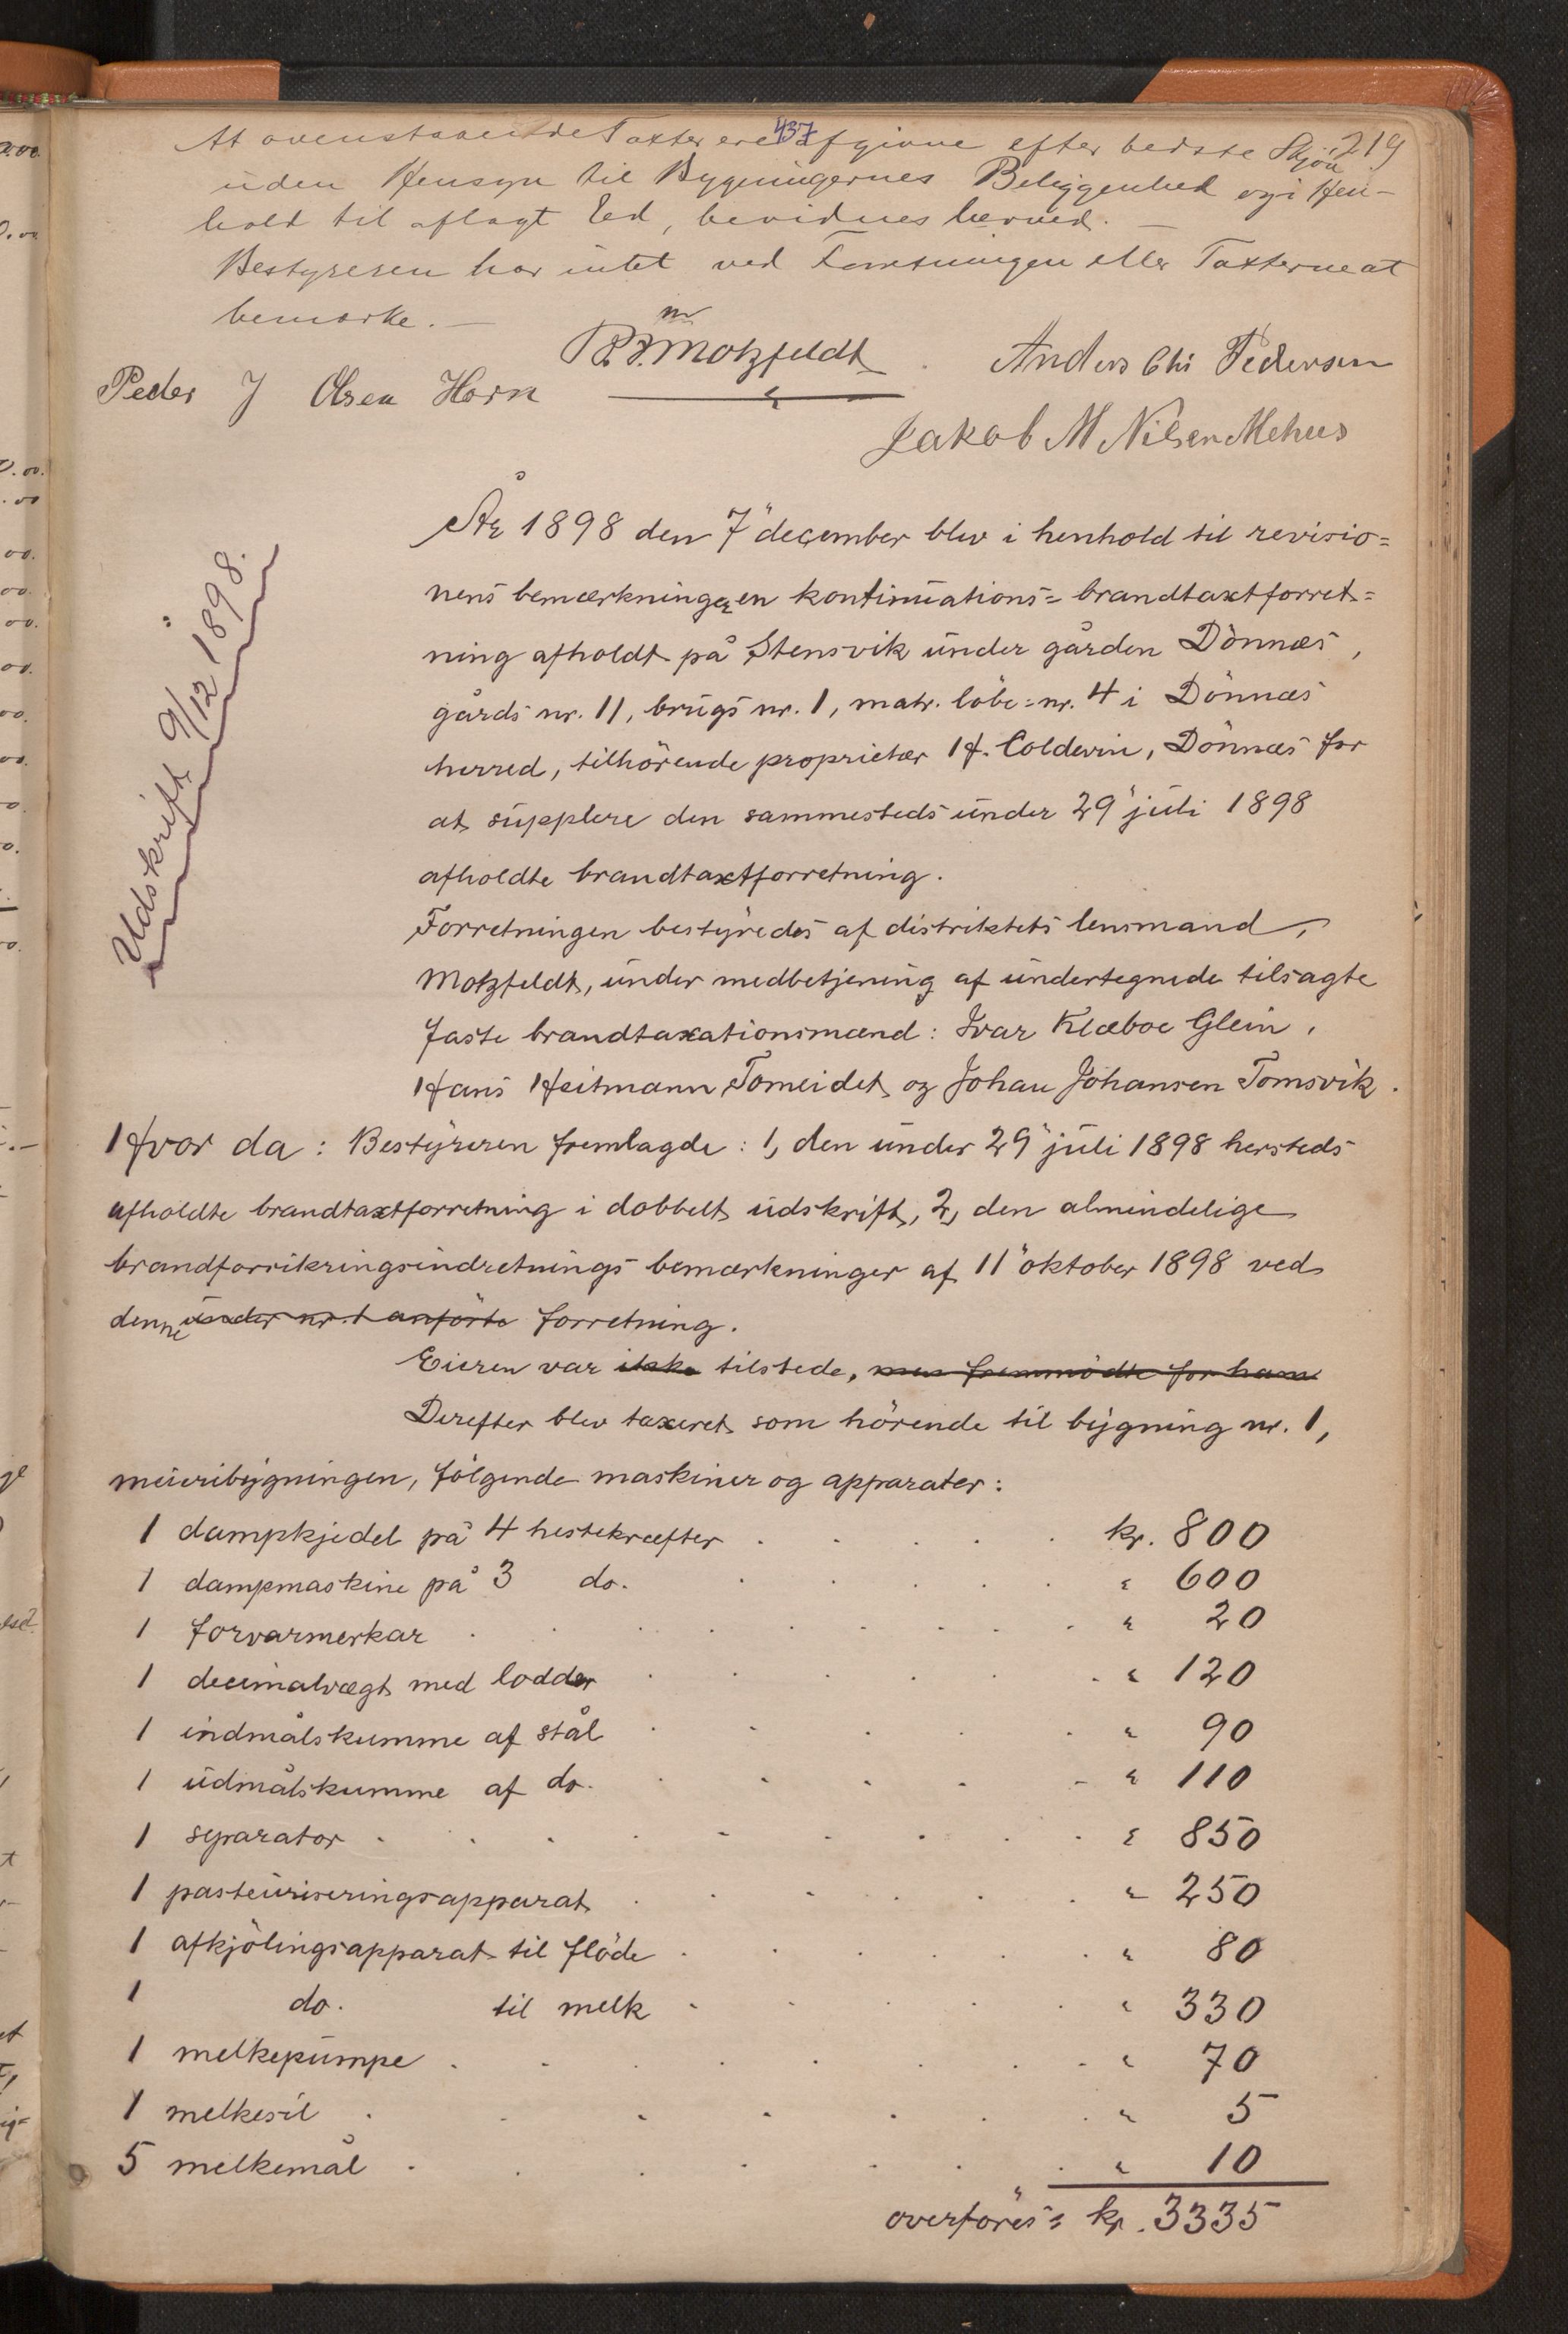 437
219
At ovenstaaende Taxter ere afgivne efter bedste Skjøn
uden Hensyn til Bygningernes Beliggenhed og i Hen-
hold til aflagt Ed, bevidnes herved. —
Bestyreren har intet ved Forretningen eller Taxterne at
bemærke. —
Motzfeldt
Anders Chr Pedersen
Peder J Olsen Horn
Jakob M Nilsen Mehus
Udskrift 9/12 1898.
År 1898 den 7" december blev i henhold til revisio=
nens bemærkninger en kontinuations= brandtaxtforret=
ning afholdt på Stensvik under gården Dönnæs,
gårds nr. 11, brugs nr. 1, matr. löbe=nr. 4 i Dönnæs
herred, tilhörende proprietær H. Coldevin, Dönnæs for
at supplere den sammesteds under 29" juli 1898
afholdte brandtaxtforretning.
Forretningen bestyredes af distriktets lensmand,
Motzfeldt, under medbetjening af undertegnede tilsagte
faste brandtaxationsmænd: Ivar Klæboe Glein,
Hans Heitmann Tomeidet og Johan Johansen Tomsvik.
Hvor da: Bestyreren fremlagde: 1, den under 29" juli 1898 hersteds
afholdte brandtaxtforretning i dobbelt udskrift, 2, den almindelige
brandforsikringsindretnings bemærkninger af 11" oktober 1898 ved
denne under nr. 1 anförte forretning.
Eieren var ikke tilstede, men fremmödte for ham
Derefter blev taxeret som hörende til bygning nr. 1,
meieribygningen, fölgende maskiner og apparater:
1 dampkjedel på 4 hestekræfter . . . . . kr. 800
1 dampmaskine på 3 do. . . . . " 600
1 forvarmerkar . . . . . " 20
1 decimalvægt med lodder . . . . . " 120
1 indmålskumme af stål . . . . . " 90
1 udmålskumme af do. . . . . . " 110
1 separator . . . . . " 850
1 pasteuriseringsapparat . . . . . " 250
1 afkjölingsapparat til flöde . . . . . " 80
1 do. til melk . . . . . " 330
1 melkepumpe . . . . . " 70
1 melkesil . . . . . " 5
5 melkemål . . . . . " 10
overföres: kr. 3335